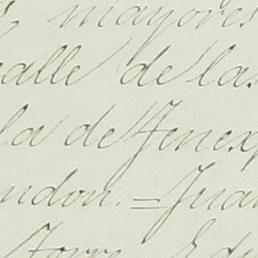 mayores
alle de las
la de Jenex
ndon. = Jua